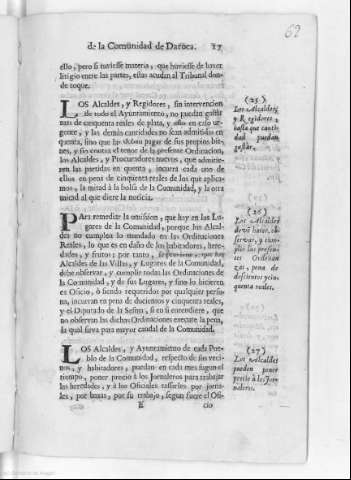 69
de la Comunidad de Daroca. 17
ello, pero si tuviesse materia, que huviesse de haver
litigio entre las partes, estas acudan al Tribunal don-
de toque.
LOS Alcaldes, y Regidores, sin intervencion
de todo el Ayuntamiento, no puedan gastar
mas de cinquenta reales de plata, y esto en caso ur-
gente, y las demás cantidades no sean admitidas en
quenta, sino que las deban pagar de sus propios bie-
nes, y si contra el tenor de la presente Ordinacion,
los Alcaldes, y Procuradores nuevos, que admitie-
ren las partidas en quenta, incurra cada uno de
ellos en pena de cinquenta reales de los que aplica-
mos, la mitad à la bolsa de la Comunidad, y la otra
mitad al que diere la noticia.
(25)
Los Alcaldes,
y Regidores,
hasta que canti-
dad puedan
gastar.
PAra remediar la omission, que hay en los Lu-
gares de la Comunidad, porque los Alcal-
des no cumplen lo mandado en las Ordinaciones
Reales, lo que es en daño de los habitadores, hereda-
des, y frutos; por tanto,
Alcaldes de las Villas, y Lugares de la Comunidad,
debe observar, y cumplir todas las Ordinaciones de
la Comunidad, y de sus Lugares, y sino lo hicieren
ex Oficio, ò siendo requeridos por qualquier perso-
na, incurran en pena de ducientos y cinquenta reales,
y el Diputado de la Sesma, si en sì entendiere, que
no observan las dichas Ordinaciones execute la pena,
la qual sirva para mayor caudal de la Comunidad.
(26)
Los Alcaldes
deven hacer, ob-
servar, y cum-
plir las presen-
tes Ordinacio-
nes, pena de
descientos y cin-
quenta reales.
LOS Alcaldes, y Ayuntamiento de cada Pue-
blo de la Comunidad, respecto de sus veci-
nos, y habitadores, puedan en cada mes segun el
tiempo, poner precio à los Jornaleros para trabajar
las heredades, y à los Oficiales tassarles por jorna-
les, por horas, por su trabajo, segun fuere el Ofi-
(27)
Los Alcaldes
pueden poner
precio à los Jor-
naleros.
E cio